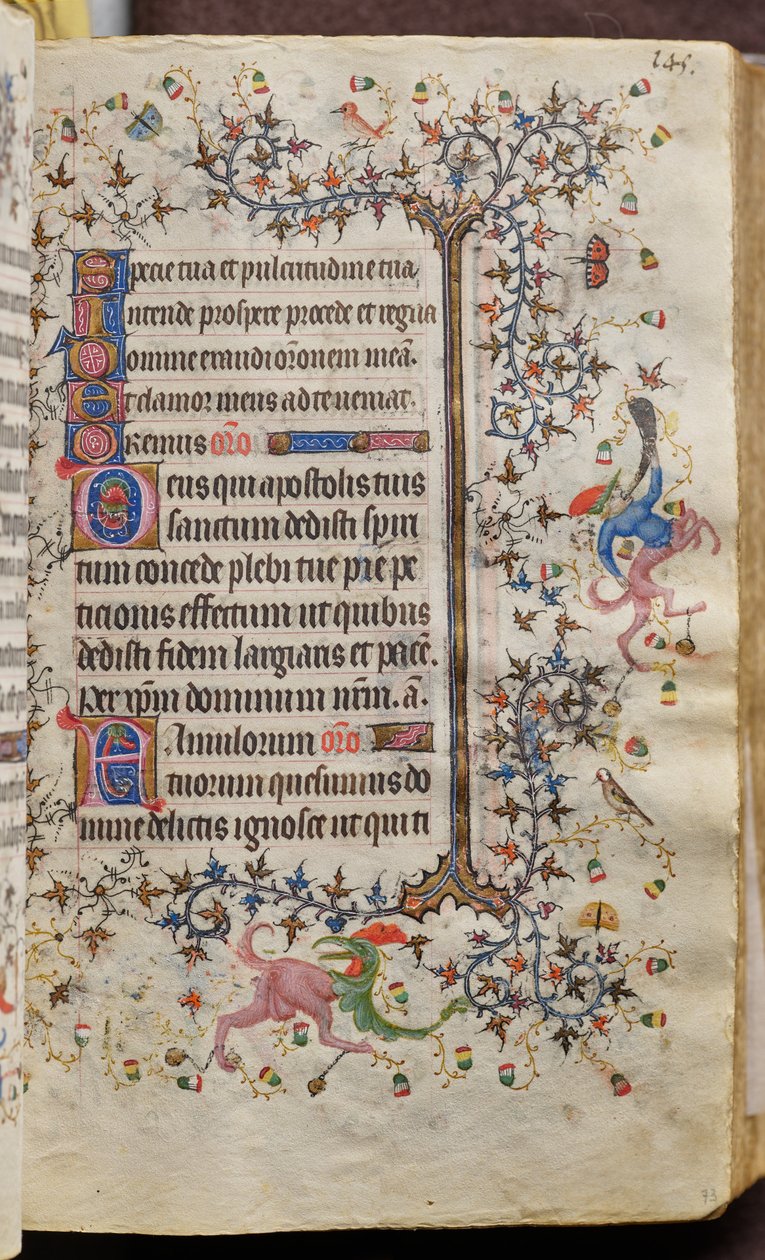 145.
Specie tua et pulcritudine tua
Intende prospere procede et regna
Domine exaudi orōnem meā.
Et clamor meus ad te veniat.
Oremus orō
Deus qui apostolis tuis
sanctum dedisti spiri
tum concede plebi tue pie pe
ticionis effectum ut quibus
dedisti fidem largiaris et pacē.
Per xp̄m dominum nr̄m. a.
Famulorum orō
tuorum quesumus do
mine delictis ignosce ut qui ti
73